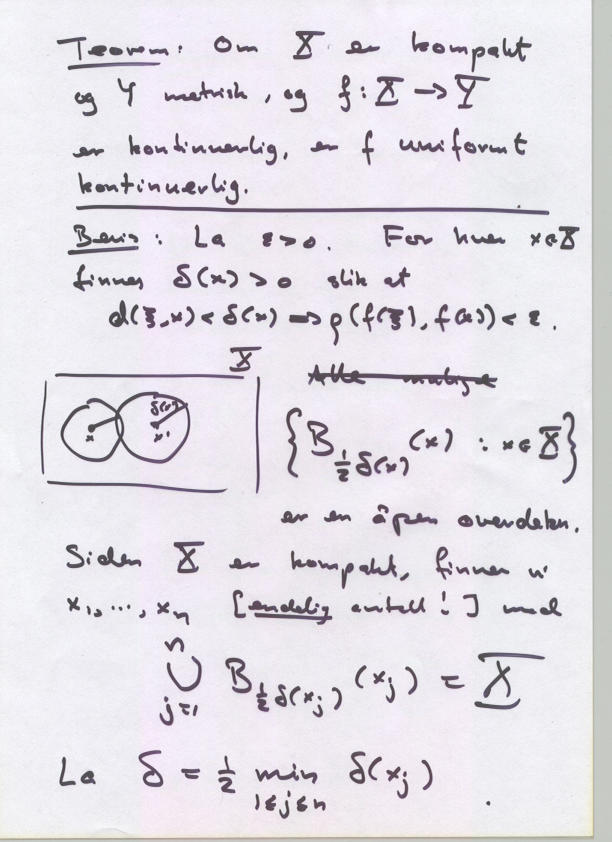 Teorem: Om X er kompakt
og Y metrisk, og f: X → Y
er kontinuerlig, er f uniformt
kontinuerlig.
Bevis: La ε>0. For hver x∈X
finnes δ(x) > 0 slik at
d(ξ,x) < δ(x) ⟹ ρ(f(ξ), f(x)) < ε.
X
δ(x')
x x'
Alle mulige
{B_{½δ(x)}(x) : x∈X}
er en åpen overdekn.
Siden X er kompakt, finner vi
x₁, ..., xₙ [endelig antall!] med
⋃_{j=1}^{n} B_{½δ(x_j)}(x_j) = X
La δ = ½ min_{1≤j≤n} δ(x_j)